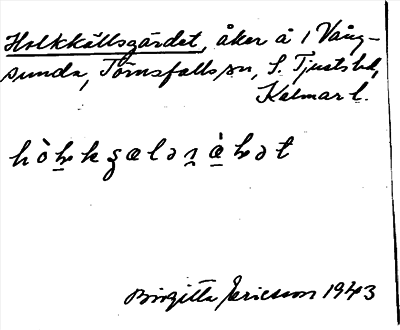 Holkkällsgärdet, åker å 1 Vång-
sunda, Törnsfalls sn, S. Tjusts hd,
Kalmar l.
Birgitta Ericsson 1943